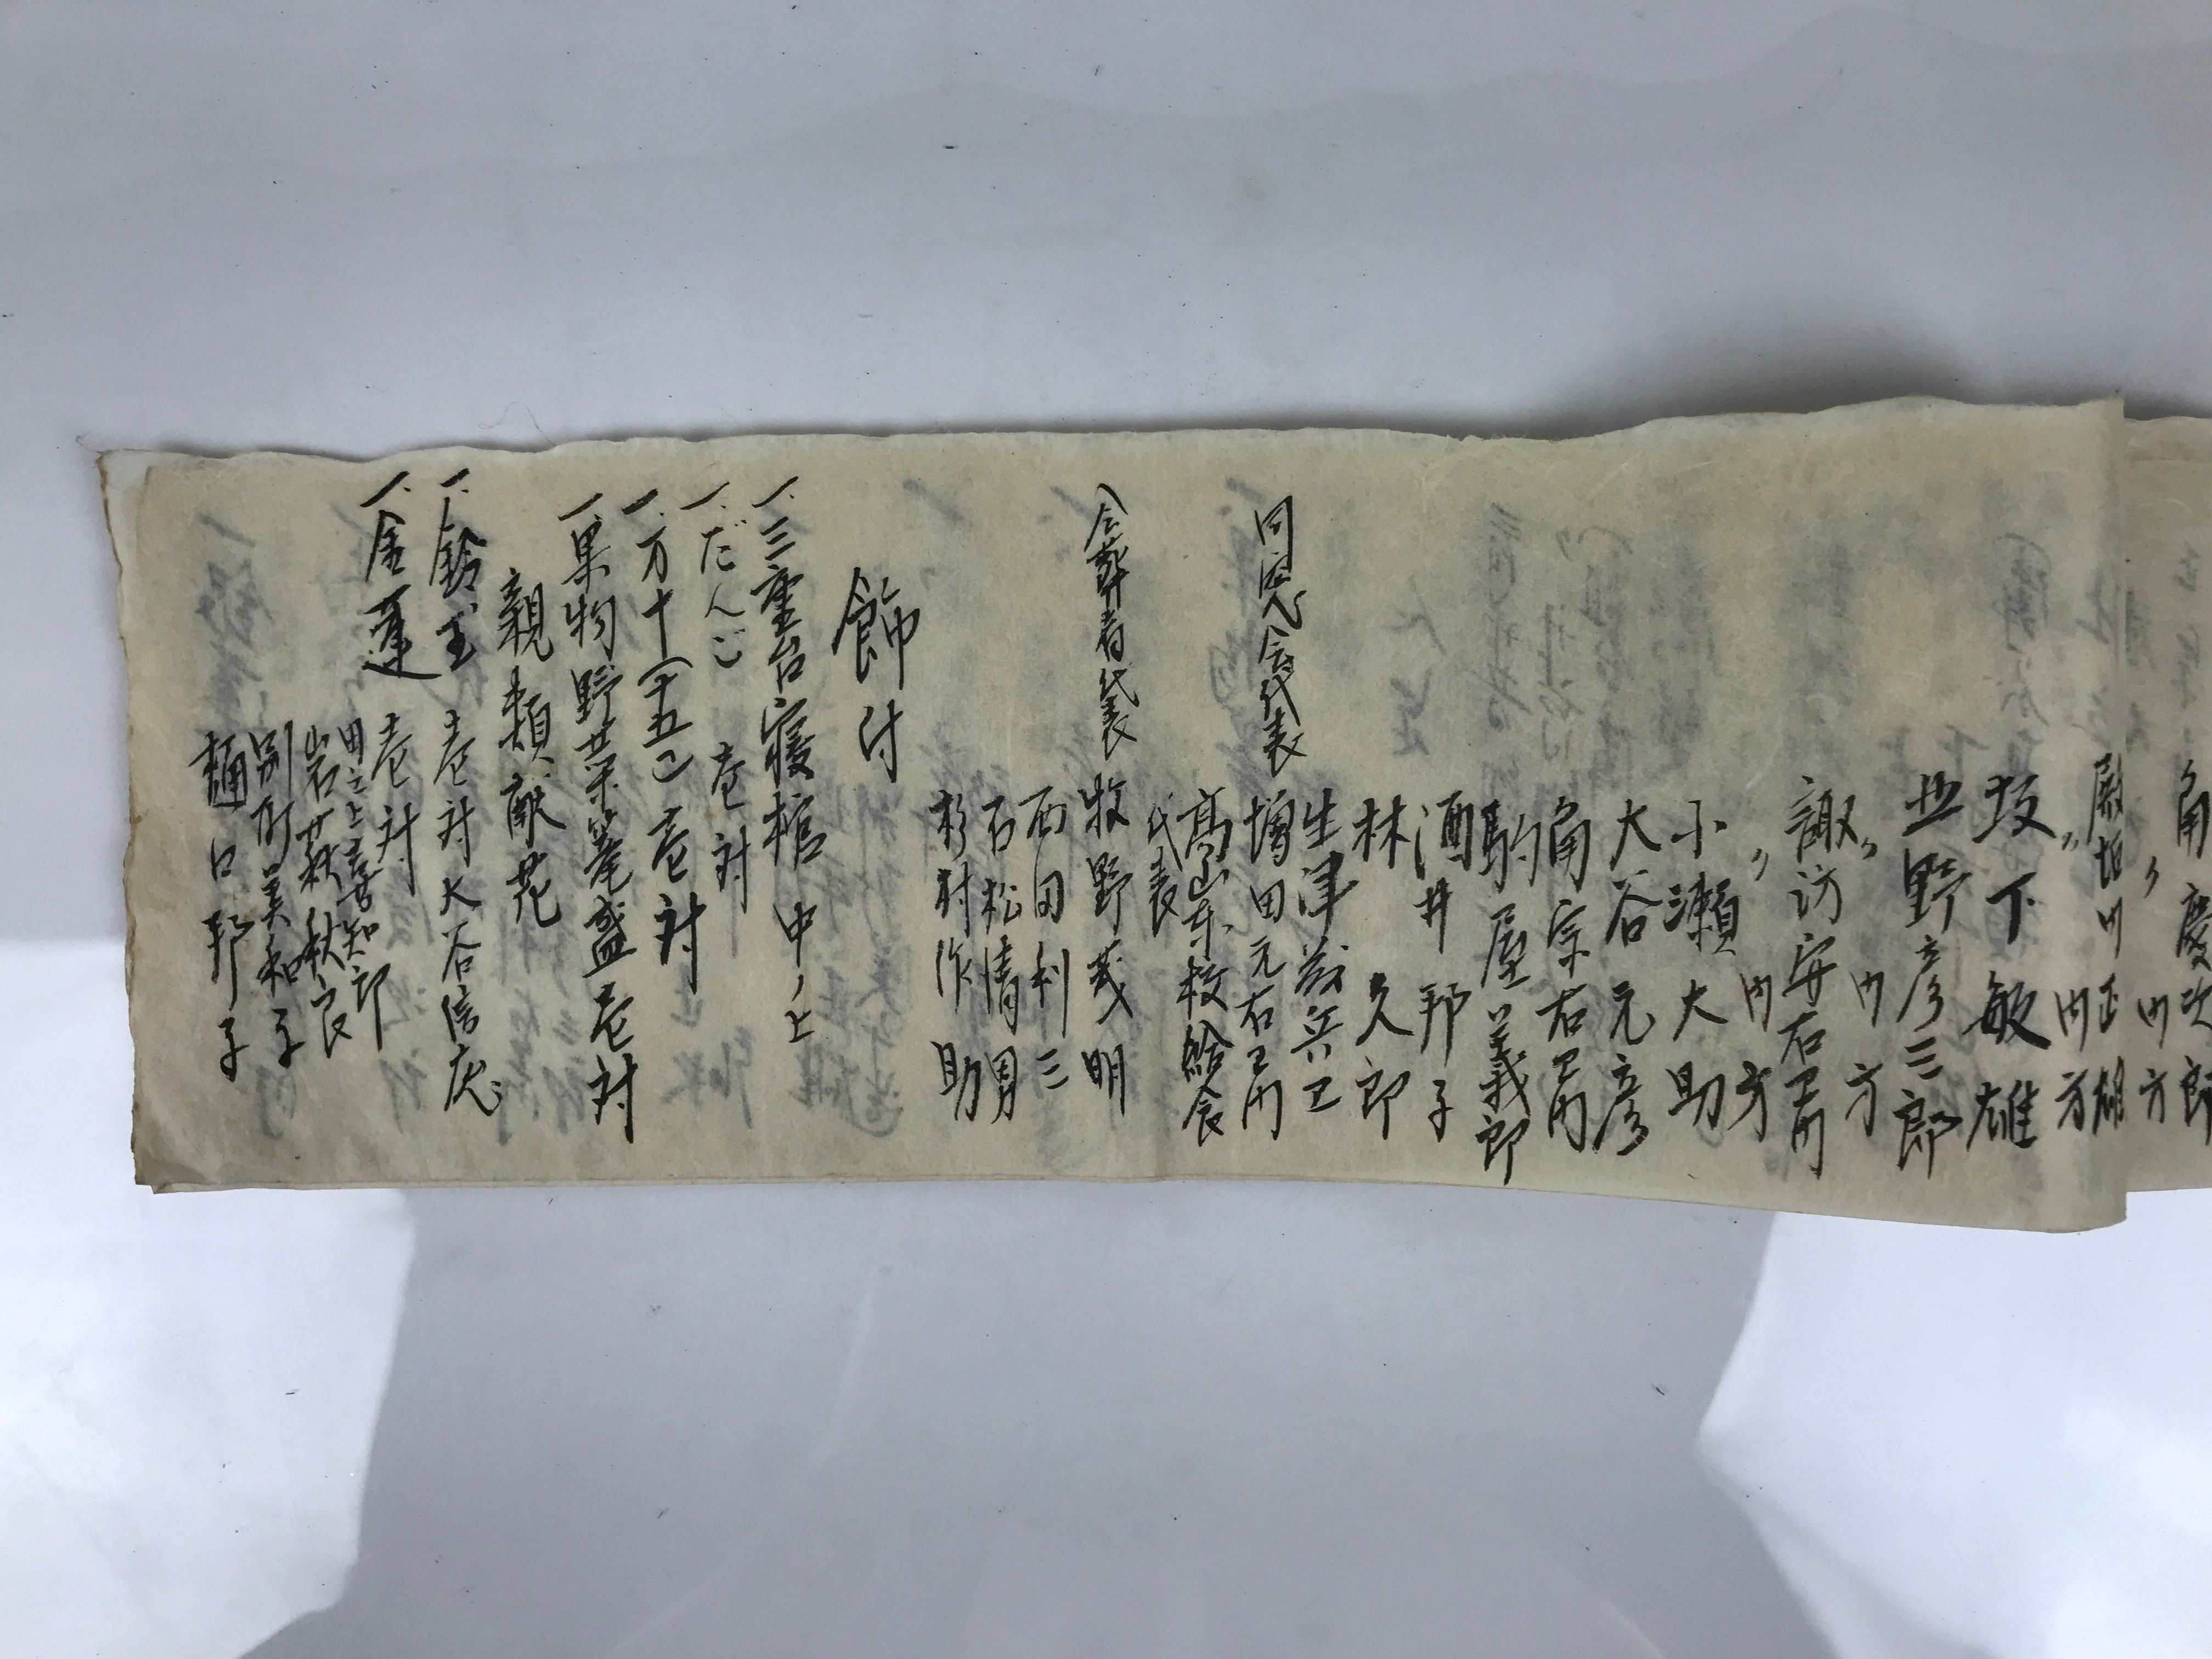 角慶次郎
〃内方
殿垣内正雄
〃内方
坂下敏雄
丗野彦三郎
〃内方
諏訪安右卫门
〃内方
小瀬大助
大谷元彦
角宗右卫门
駒屋義郎
酒井邦子
林久郎
生津義兵卫
同窓会代表 増田元右卫门
高山東校 給食
代表
会葬者代表 牧野茂明
西田利三
石松情男
杉村作助
飾付
一、三重台寝棺 中ノ上
一、だんご 壱対
一、万十(十五こ)壱対
一、果物野菜篭盛壱対
親類献花
一、鈴玉 壱対 大谷信広
一、金蓮 壱対
田之上喜知郎
岩萩秋良
別所美和子
樋口邦子